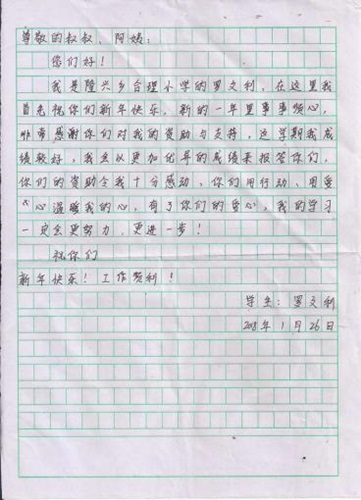 尊敬的叔叔、阿姨：
您们好！
我是隆兴乡合理小学的罗文利，在这里我
首先祝你们新年快乐，新的一年里事事顺心，
非常感谢你们对我的资助与支持，这学期我成
绩较好，我会以更加优异的成绩来报答你们，
你们的资助令我十分感动，你们用行动、用爱
心温暖我的心，有了你们的爱心，我的学习
一定会更努力，更进一步！
祝你们
新年快乐！工作顺利！
学生：罗文利
2018年1月26日